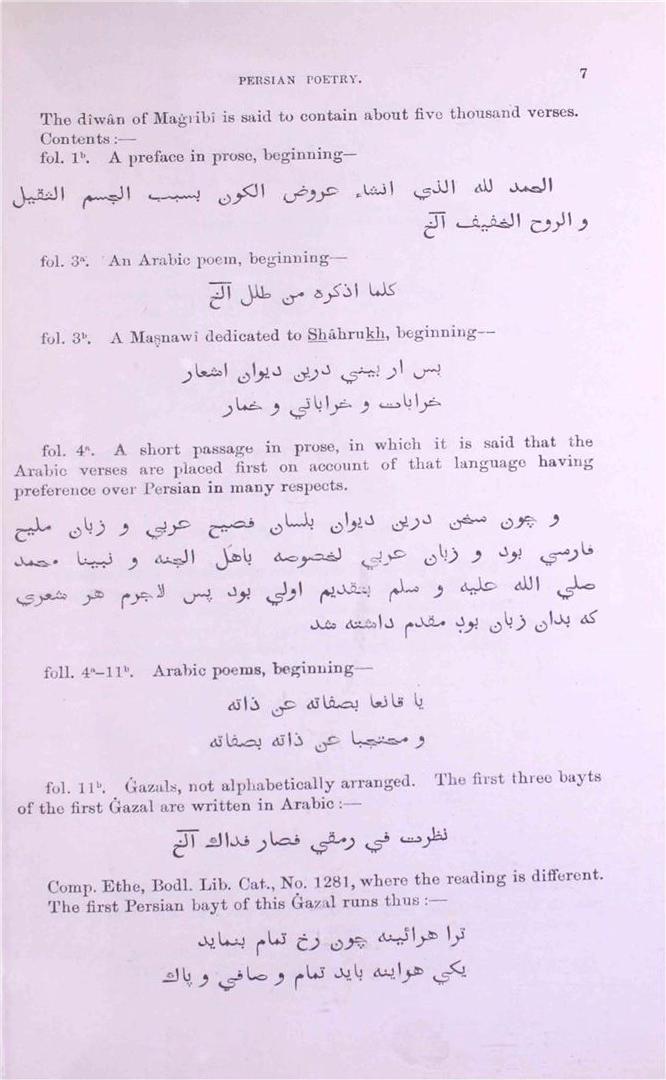 PERSIAN POETRY.
7
The dîwân of Maġribî is said to contain about five thousand verses.
Contents :—
fol. 1ᵇ. A preface in prose, beginning—
الحمد لله الذي انشاء عروض الكون بسبب الجسم الثقيل
و الروح الخفيف الخ
fol. 3ᵃ. An Arabic poem, beginning—
كلما اذكره من طلل الخ
fol. 3ᵇ. A Maṣnawî dedicated to Shâhrukh, beginning--
بس ار بيني درين ديوان اشعار
خرابات و خراباتي و خمار
fol. 4ᵃ. A short passage in prose, in which it is said that the
Arabic verses are placed first on account of that language having
preference over Persian in many respects.
و چون سخن درين ديوان بلسان فصيح عربي و زبان مليح
فارسي بود و زبان عربي لخصوصه باهل الجنه و نبينا محمد
صلي الله عليه و سلم بتقديم اولي بود پس لاجرم هر شعري
كه بدان زبان بود مقدم داشته شد
foll. 4ᵃ–11ᵇ. Arabic poems, beginning—
يا قانعا بصفاته عن ذاته
و محتجبا عن ذاته بصفاته
fol. 11ᵇ. Ġazals, not alphabetically arranged. The first three bayts
of the first Ġazal are written in Arabic :—
نظرت في رمقي فصار فداك الخ
Comp. Ethe, Bodl. Lib. Cat., No. 1281, where the reading is different.
The first Persian bayt of this Ġazal runs thus :—
ترا هرائينه چون رخ تمام بنمايد
يكي هواينه بايد تمام و صافي و پاك